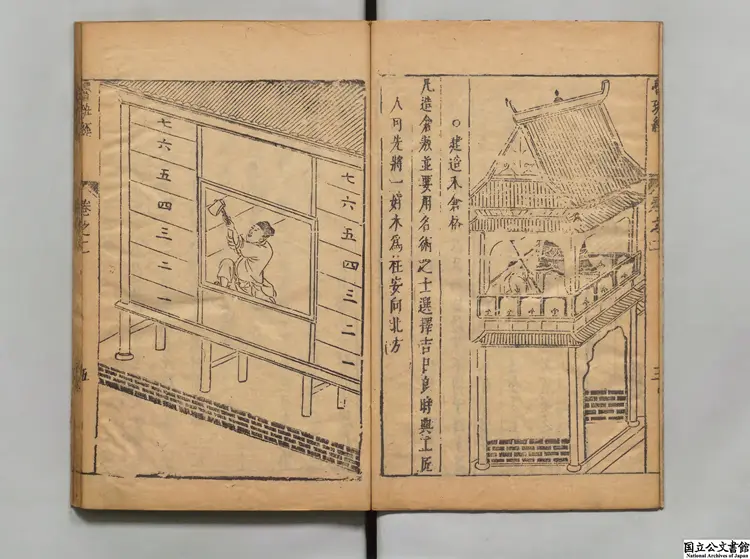 魯班經
卷之二
○建造禾倉格
凡造倉敖並要用名術之士選擇吉日良時興工匠
人可先將一好木爲柱安向北方
七
六
五
四
三
二
一
七
六
五
四
三
二
一
魯班經
卷之二
五
国立公文書館
National Archives of Japan